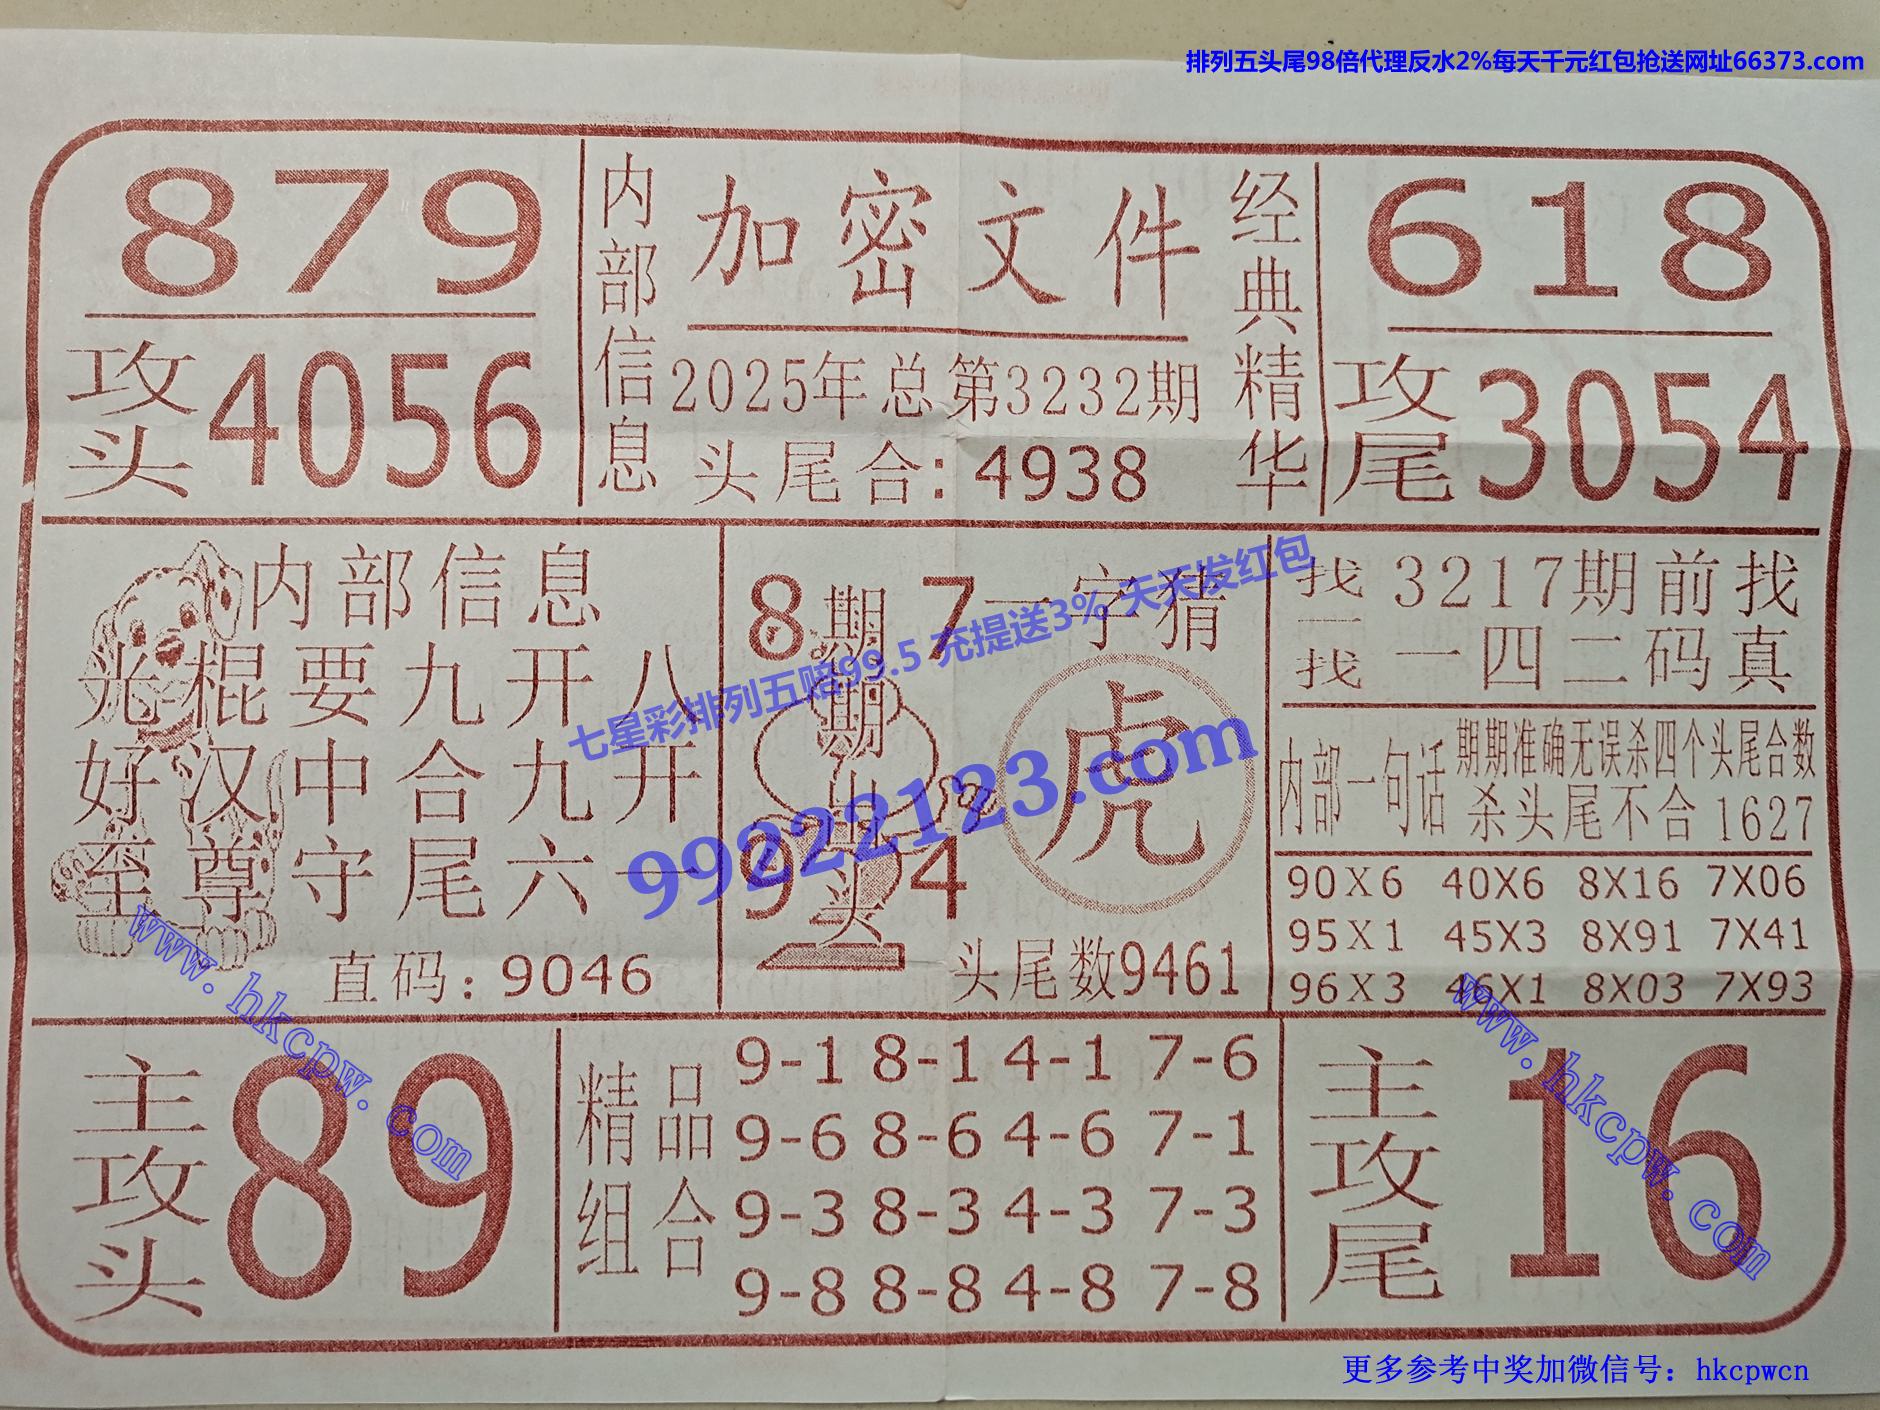 排列五头尾98倍代理反水2%每天千元红包抢送网址66373.com
879
攻头4056
内部信息
加密文件
2025年总第3232期
头尾合:4938
经典精华
618
攻尾3054
内部信息
光棍要九开八
好汉中合九开
至尊守尾六一
直码:9046
8 7
期期出头
9 4
一字猜
虎
头尾数9461
找一找
3217期前找
一四二码真
内部一句话
期期准确无误杀四个头尾合数
杀头尾不合1627
90X6 40X6 8X16 7X06
95X1 45X3 8X91 7X41
96X3 46X1 8X03 7X93
七星彩排列五赔99.5 充提送3% 天天发红包
99222123.com
www.hkcpw.com
www.hkcpw.com
主攻头
89
精品组合
9-1 8-1 4-1 7-6
9-6 8-6 4-6 7-1
9-3 8-3 4-3 7-3
9-8 8-8 4-8 7-8
主攻尾
16
更多参考中奖加微信号：hkcpwcn